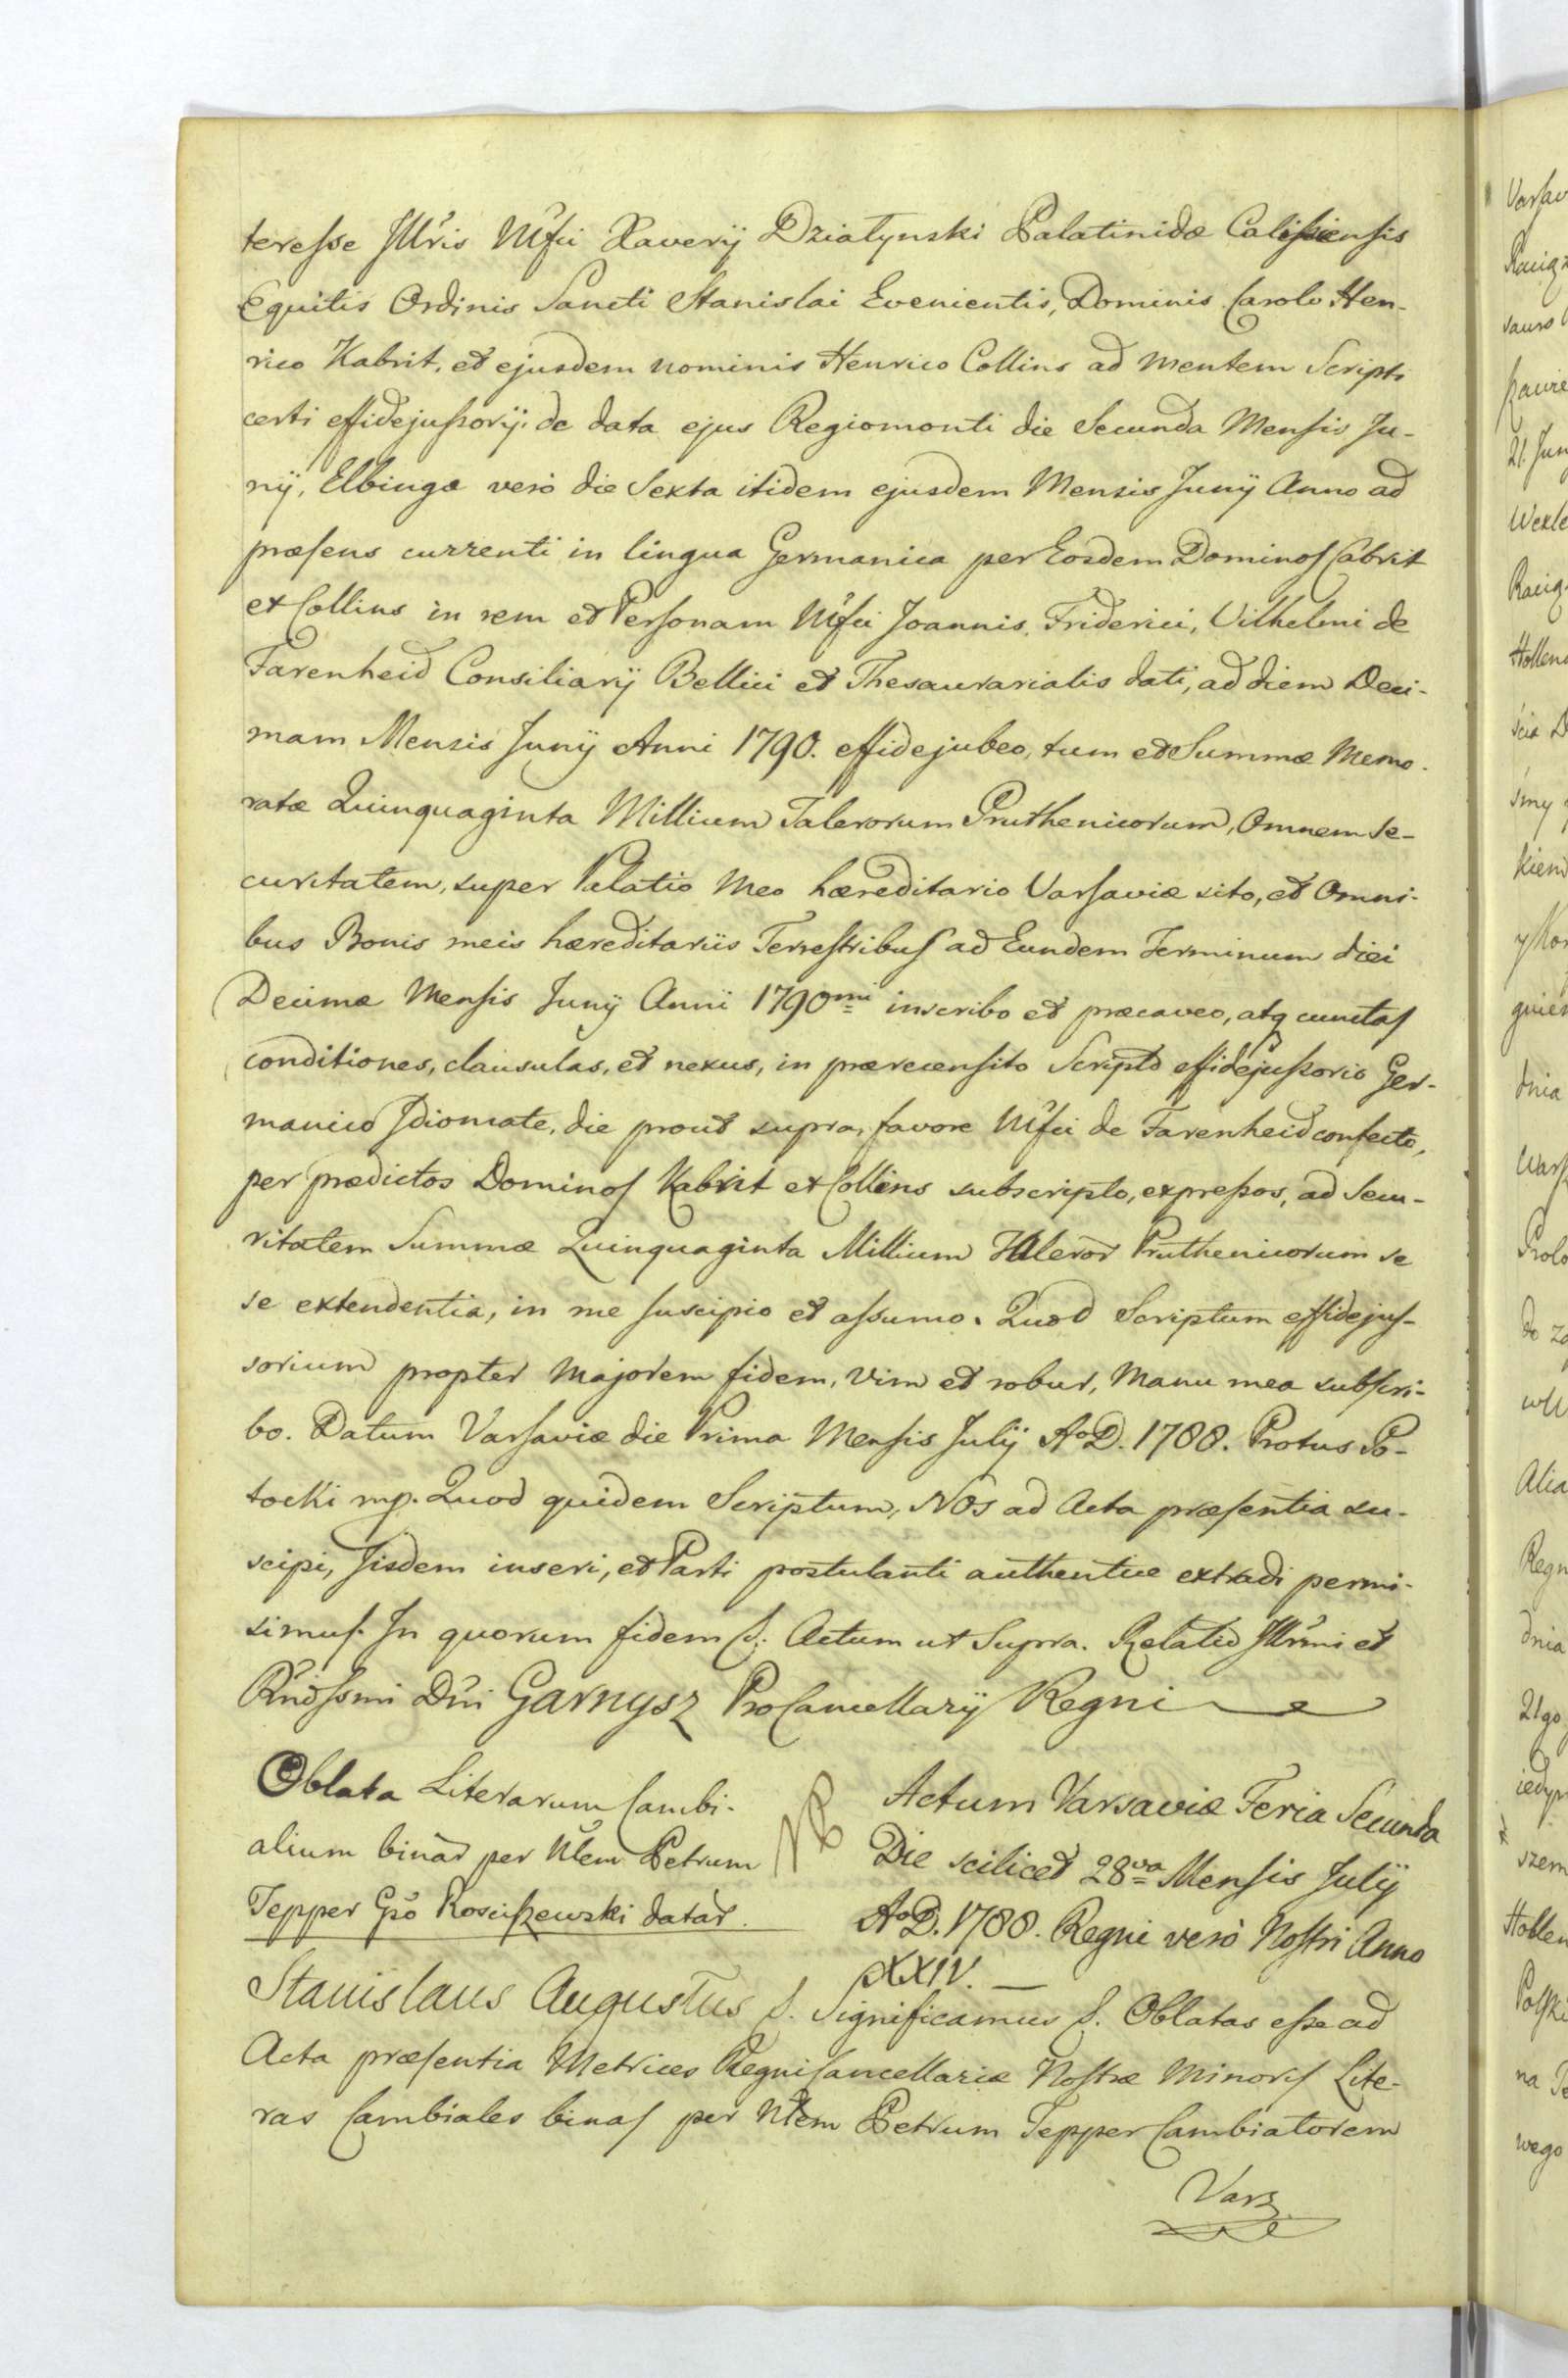 teresse Jllris Mfci Xaverÿ Działynski Palatinidæ Calissiensis
Equitis Ordinis Sancti Stanislai Evenientis, Dominis Carolo Hen-
rico Kabrit, et ejusdem nominis Henrico Collins ad mentem Scripti
certi effidejussorÿ. de data ejus Regiomonti die Secunda Mensis Ju-
nÿ, Elbingæ verò die Sexta itidem ejusdem Mensis Junÿ Anno ad
præsens currenti in lingua Germanica per Eosdem Dominos Cabrit
et Collins in rem et Personam Mfci Joannis, Friderici, Vilhelmi de
Farenheid Consiliarÿ Bellici et Thesaurarialis dati, ad diem Deci-
mam Mensis Junÿ Anni 1790. effidejubeo, tum et Summæ Memo-
ratæ Quinquaginta Millium Talerorum Pruthenicorum, Omnem Se-
curitatem, super Palatio Meo hæreditario Varsaviæ sito, et Omni-
bus Bonis meis hæreditariis Terrestribus ad Eundem Terminum diei
Decimæ Mensis Junÿ Anni 1790mi inscribo et præcaveo, atq cunctas
conditiones, clausulas, et nexus, in prærecensito Scripto effidejussorio Ger-
manico Jdiomate, die prout supra, favore Mfci de Farenheid confecto,
per prædictos Dominos Kabrit et Collins subscripto, expressos, ad Secu-
ritatem Summæ Quinquaginta Millium Taleror Pruthenicorum se
se extendentia, in me suscipio et assumo. Quod Scriptum effidejus-
sorium propter Majorem fidem, vim et robur, Manu mea subscri-
bo. Datum Varsaviæ die Prima Mensis Julÿ AoD. 1788. Protus Po-
tocki mp. Quod quidem Scriptum, Nos ad Acta præsentia su-
scipi, Jisdem inseri, et Parti postulanti authentice extradi permi-
simus. Jn quorum fidem S. Actum ut Supra. Relatio Jllrmi et
Rndssmi Dni Garnysz ProCancellarÿ Regni
Oblata Literarum Cambi-
alium binar per Nlem Petrum
Tepper Gso Rosciszewski datar.
NB
Actum Varsaviæ Feria Secunda
Die scilicet 28va Mensis Julÿ
AoD. 1788. Regni verò Nostri Anno
XXIV.
Stanislaus Augustus S. Significamus S. Oblatas esse ad
Acta præsentia Metrices Regni Cancellariæ Nostræ Minoris Lite-
ras Cambiales binas per Nlem Petrum Tepper Cambiatorem
Vars